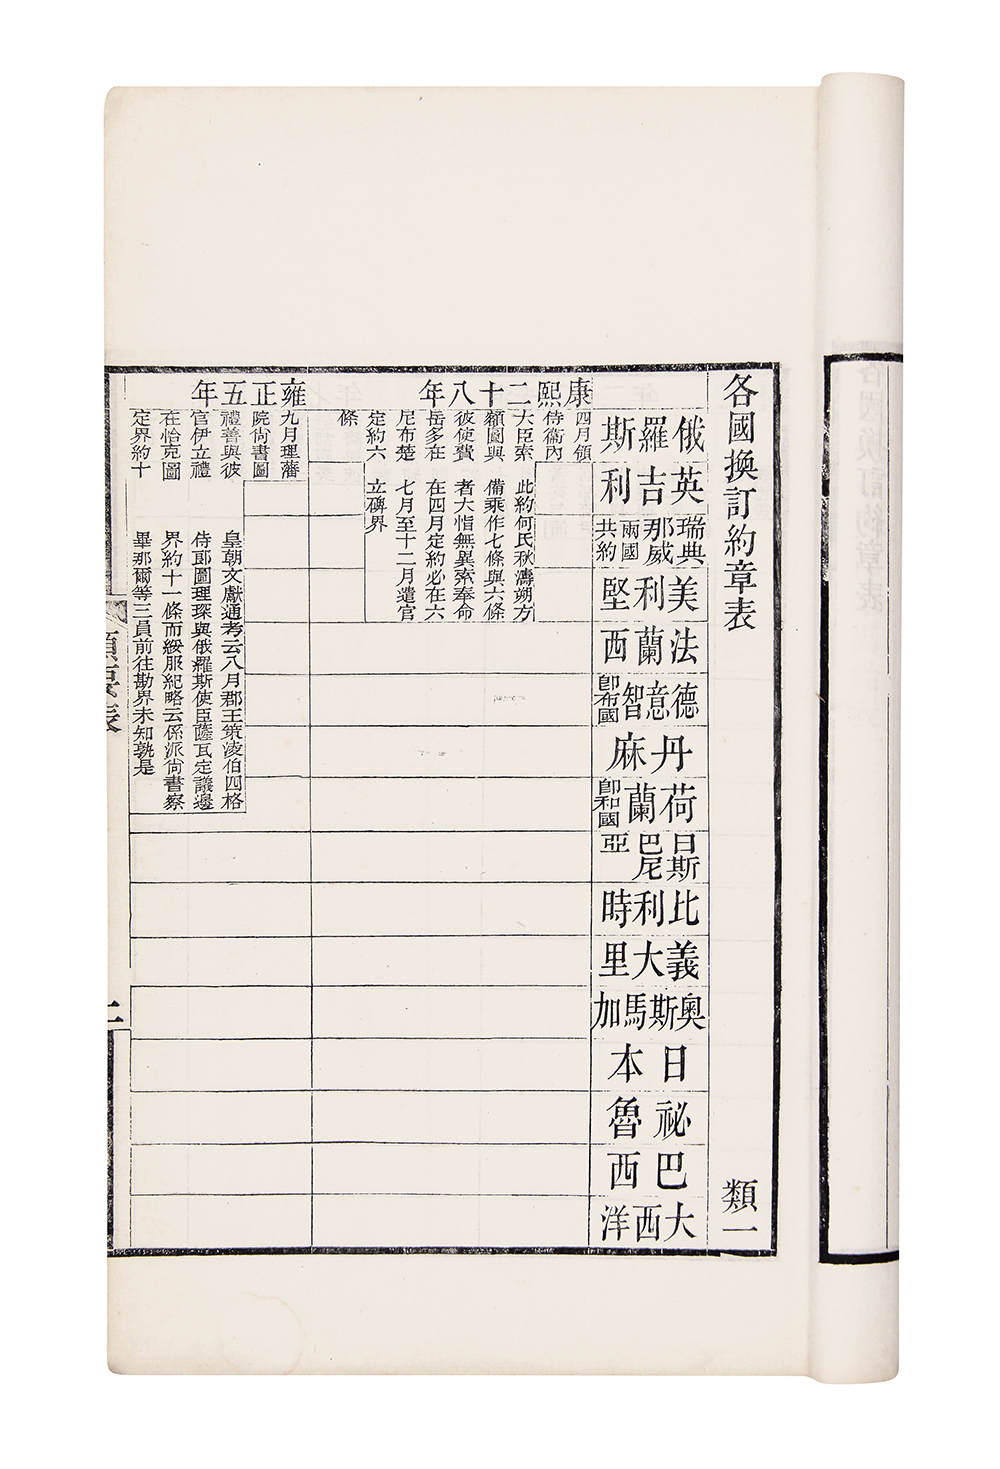 各國換訂約章表
類一
俄羅斯
英吉利
瑞典
那威
兩國
共約
美利堅
法蘭西
德意智
卽布國
丹麻
荷蘭
卽和國
日斯
巴尼
亞
比利時
義大里
奧斯馬加
日本
祕魯
巴西
大西洋
康熙二十八年
四月領
侍衞內
大臣索
額圖與
彼使費
岳多在
尼布楚
定約六
條
此約何氏秋濤朔方
備乘作七條與六條
者大恉無異索奉命
在四月定約必在六
七月至十二月遣官
立碑界
雍正五年
九月理藩
院尙書圖
禮善與彼
官伊立禮
在恰克圖
定界約十
皇朝文獻通考云八月郡王策淩伯四格
侍郎圖理琛與俄羅斯使臣薩瓦定議邊
界約十一條而綏服紀略云係派尙書察
畢那爾等三員前往勘界未知孰是